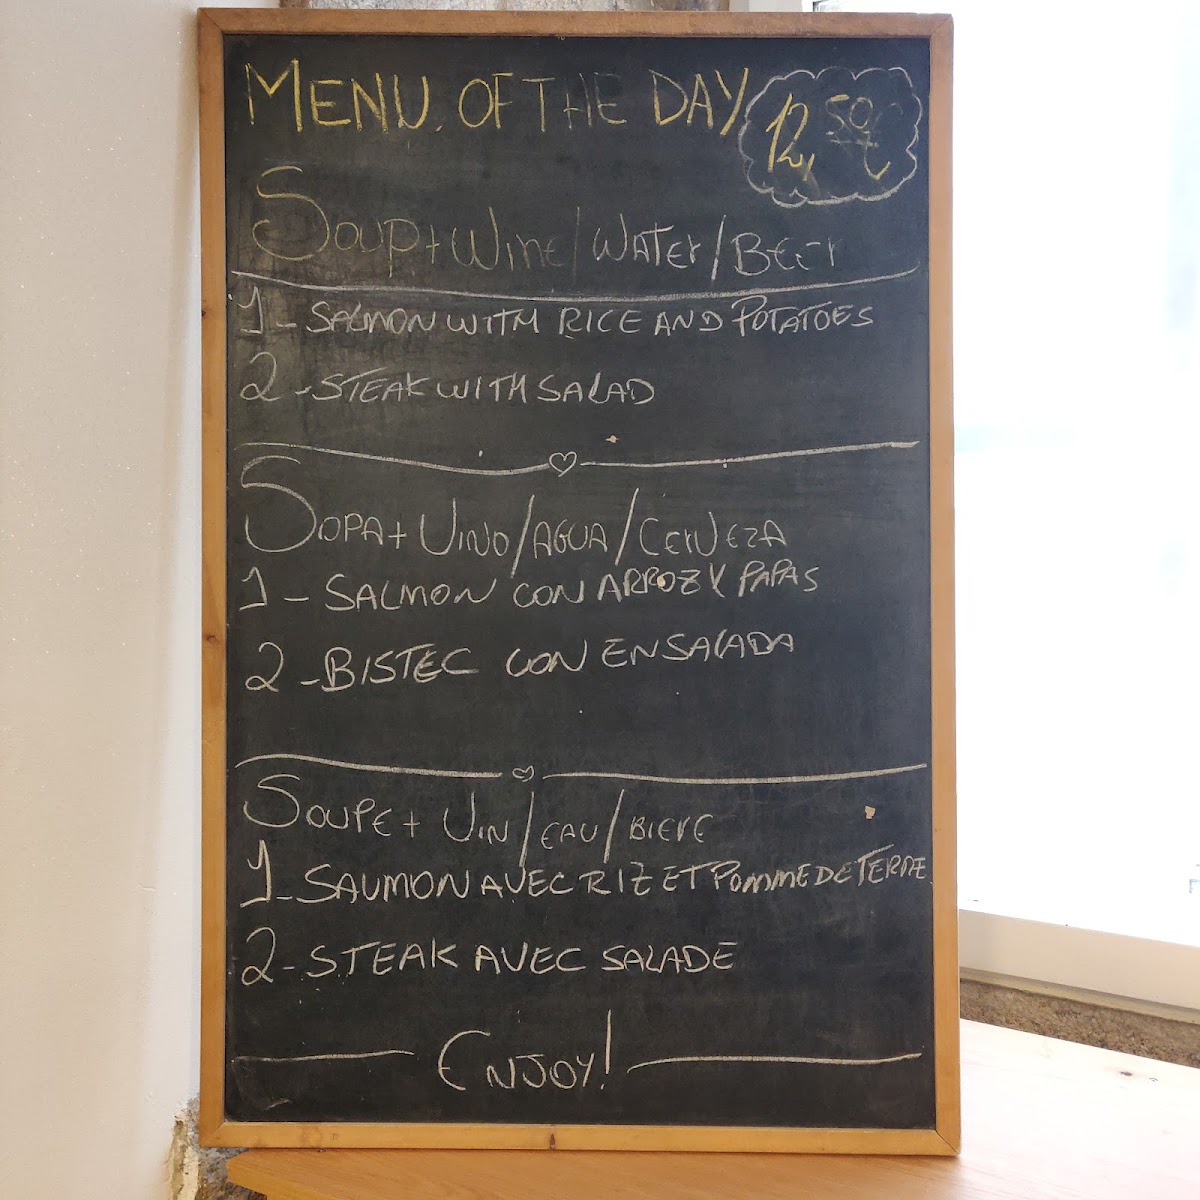 MENU OF THE DAY 12,50€
SOUP + WINE/WATER/BEER
1 - SALMON WITH RICE AND POTATOES
2 - STEAK WITH SALAD
SOPA + VINO/AGUA/CERVEZA
1 - SALMON CON ARROZ Y PAPAS
2 - BISTEC CON ENSALADA
SOUPE + VIN/EAU/BIERE
1 - SAUMON AVEC RIZ ET POMME DE TERRE
2 - STEAK AVEC SALADE
ENJOY!